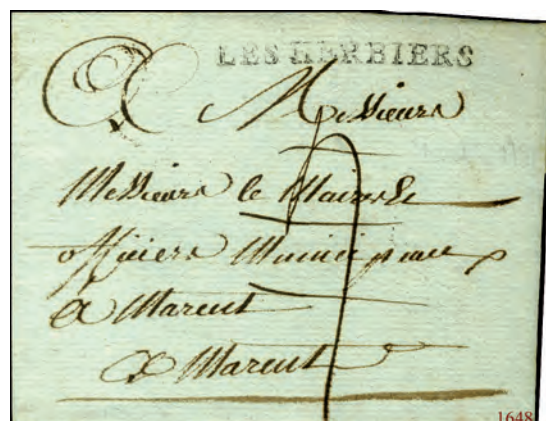 LES HERBIERS
A Messieurs
Messieurs le Maire &
officiers Municipaux
a Marent
a Marent
1648